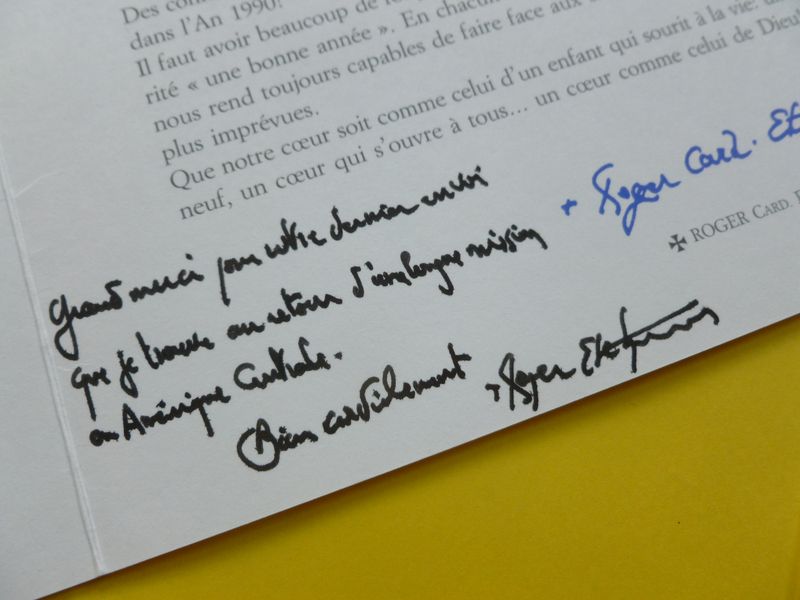 Des
dans l'An 1990!
Il faut avoir beaucoup de
rité « une bonne année ». En chacun
nous rend toujours capables de faire face aux
plus imprévues.
Que notre cœur soit comme celui d'un enfant qui sourit à la vie:
neuf, un cœur qui s'ouvre à tous... un cœur comme celui de Dieu
+ Roger Card. Et
✠ ROGER CARD.
Grand merci pour votre dernier envoi
que je trouve au retour d'une longue mission
en Amérique Centrale.
Bien cordialement
+ Roger Etchegaray